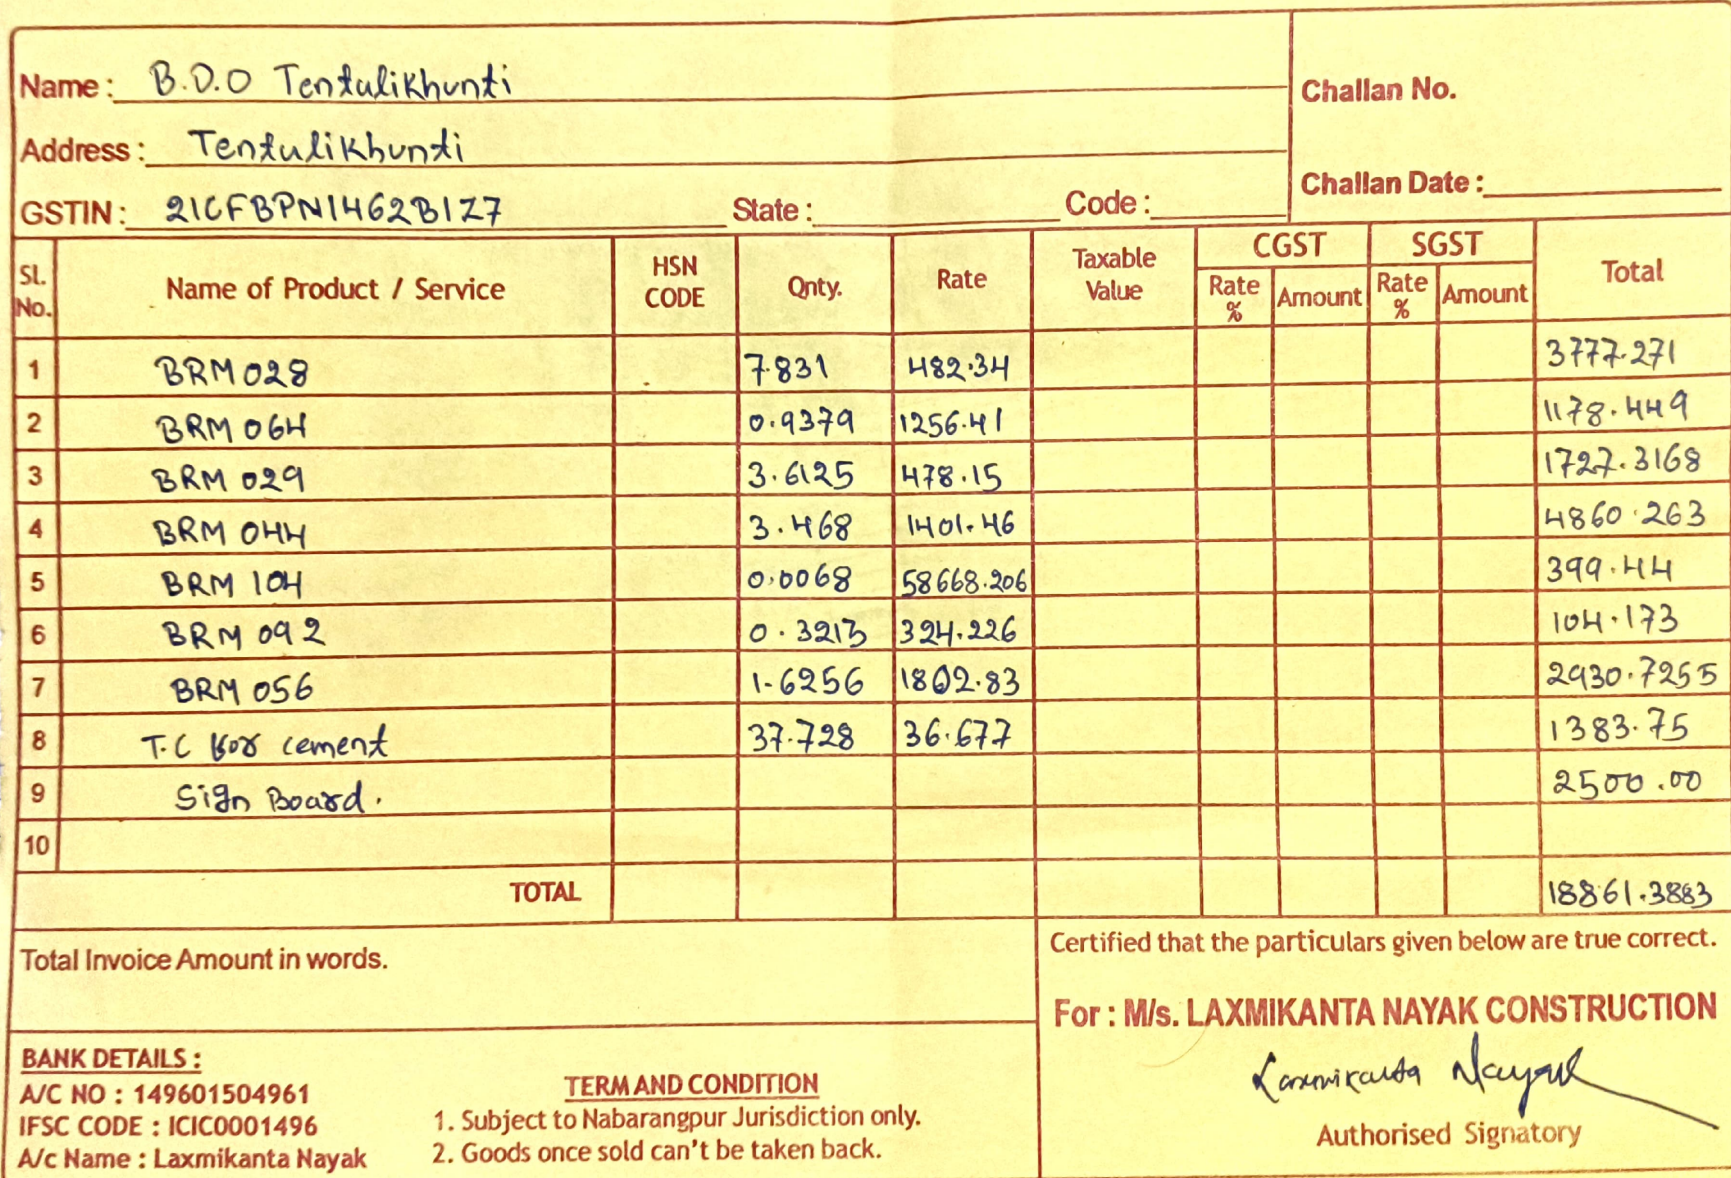 Name : B.D.O Tentulikhunti
Challan No.
Address : Tentulikhunti
Challan Date :
GSTIN : 21CFBPN1462B1Z7 State : Code :
Sl. No. Name of Product / Service HSN CODE Qnty. Rate Taxable Value CGST SGST Total
Rate % Amount Rate % Amount
1 BRM 028 7.831 482.34 3777.271
2 BRM 064 0.9379 1256.41 1178.449
3 BRM 029 3.6125 478.15 1727.3168
4 BRM 044 3.468 1401.46 4860.263
5 BRM 104 0.0068 58668.206 399.44
6 BRM 092 0.3213 324.226 104.173
7 BRM 056 1.6256 1802.83 2930.7255
8 T.C for cement 37.728 36.677 1383.75
9 Sign Board. 2500.00
10
TOTAL 18861.3883
Total Invoice Amount in words.
Certified that the particulars given below are true correct.
For : M/s. LAXMIKANTA NAYAK CONSTRUCTION
Laxmikanta Nayak
Authorised Signatory
BANK DETAILS :
A/C NO : 149601504961
IFSC CODE : ICIC0001496
A/c Name : Laxmikanta Nayak
TERM AND CONDITION
1. Subject to Nabarangpur Jurisdiction only.
2. Goods once sold can't be taken back.